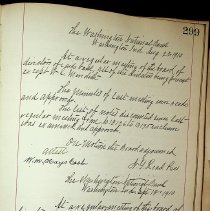 299
The Washington National Bank
Washington Ind Aug 23, 1910
At a regular meeting of the board of
directors of said bank, all of the directors being present
except W. C.
The minutes of last meeting were read
and approved.
The list of notes discounted since last
regular meeting from No. to inclusive
was examined and approved.
On motion the board adjourned
Attest
Read Pres
Cash
The Washington National Bank
Washington Ind Sept 1910
At a regular meeting of the board of